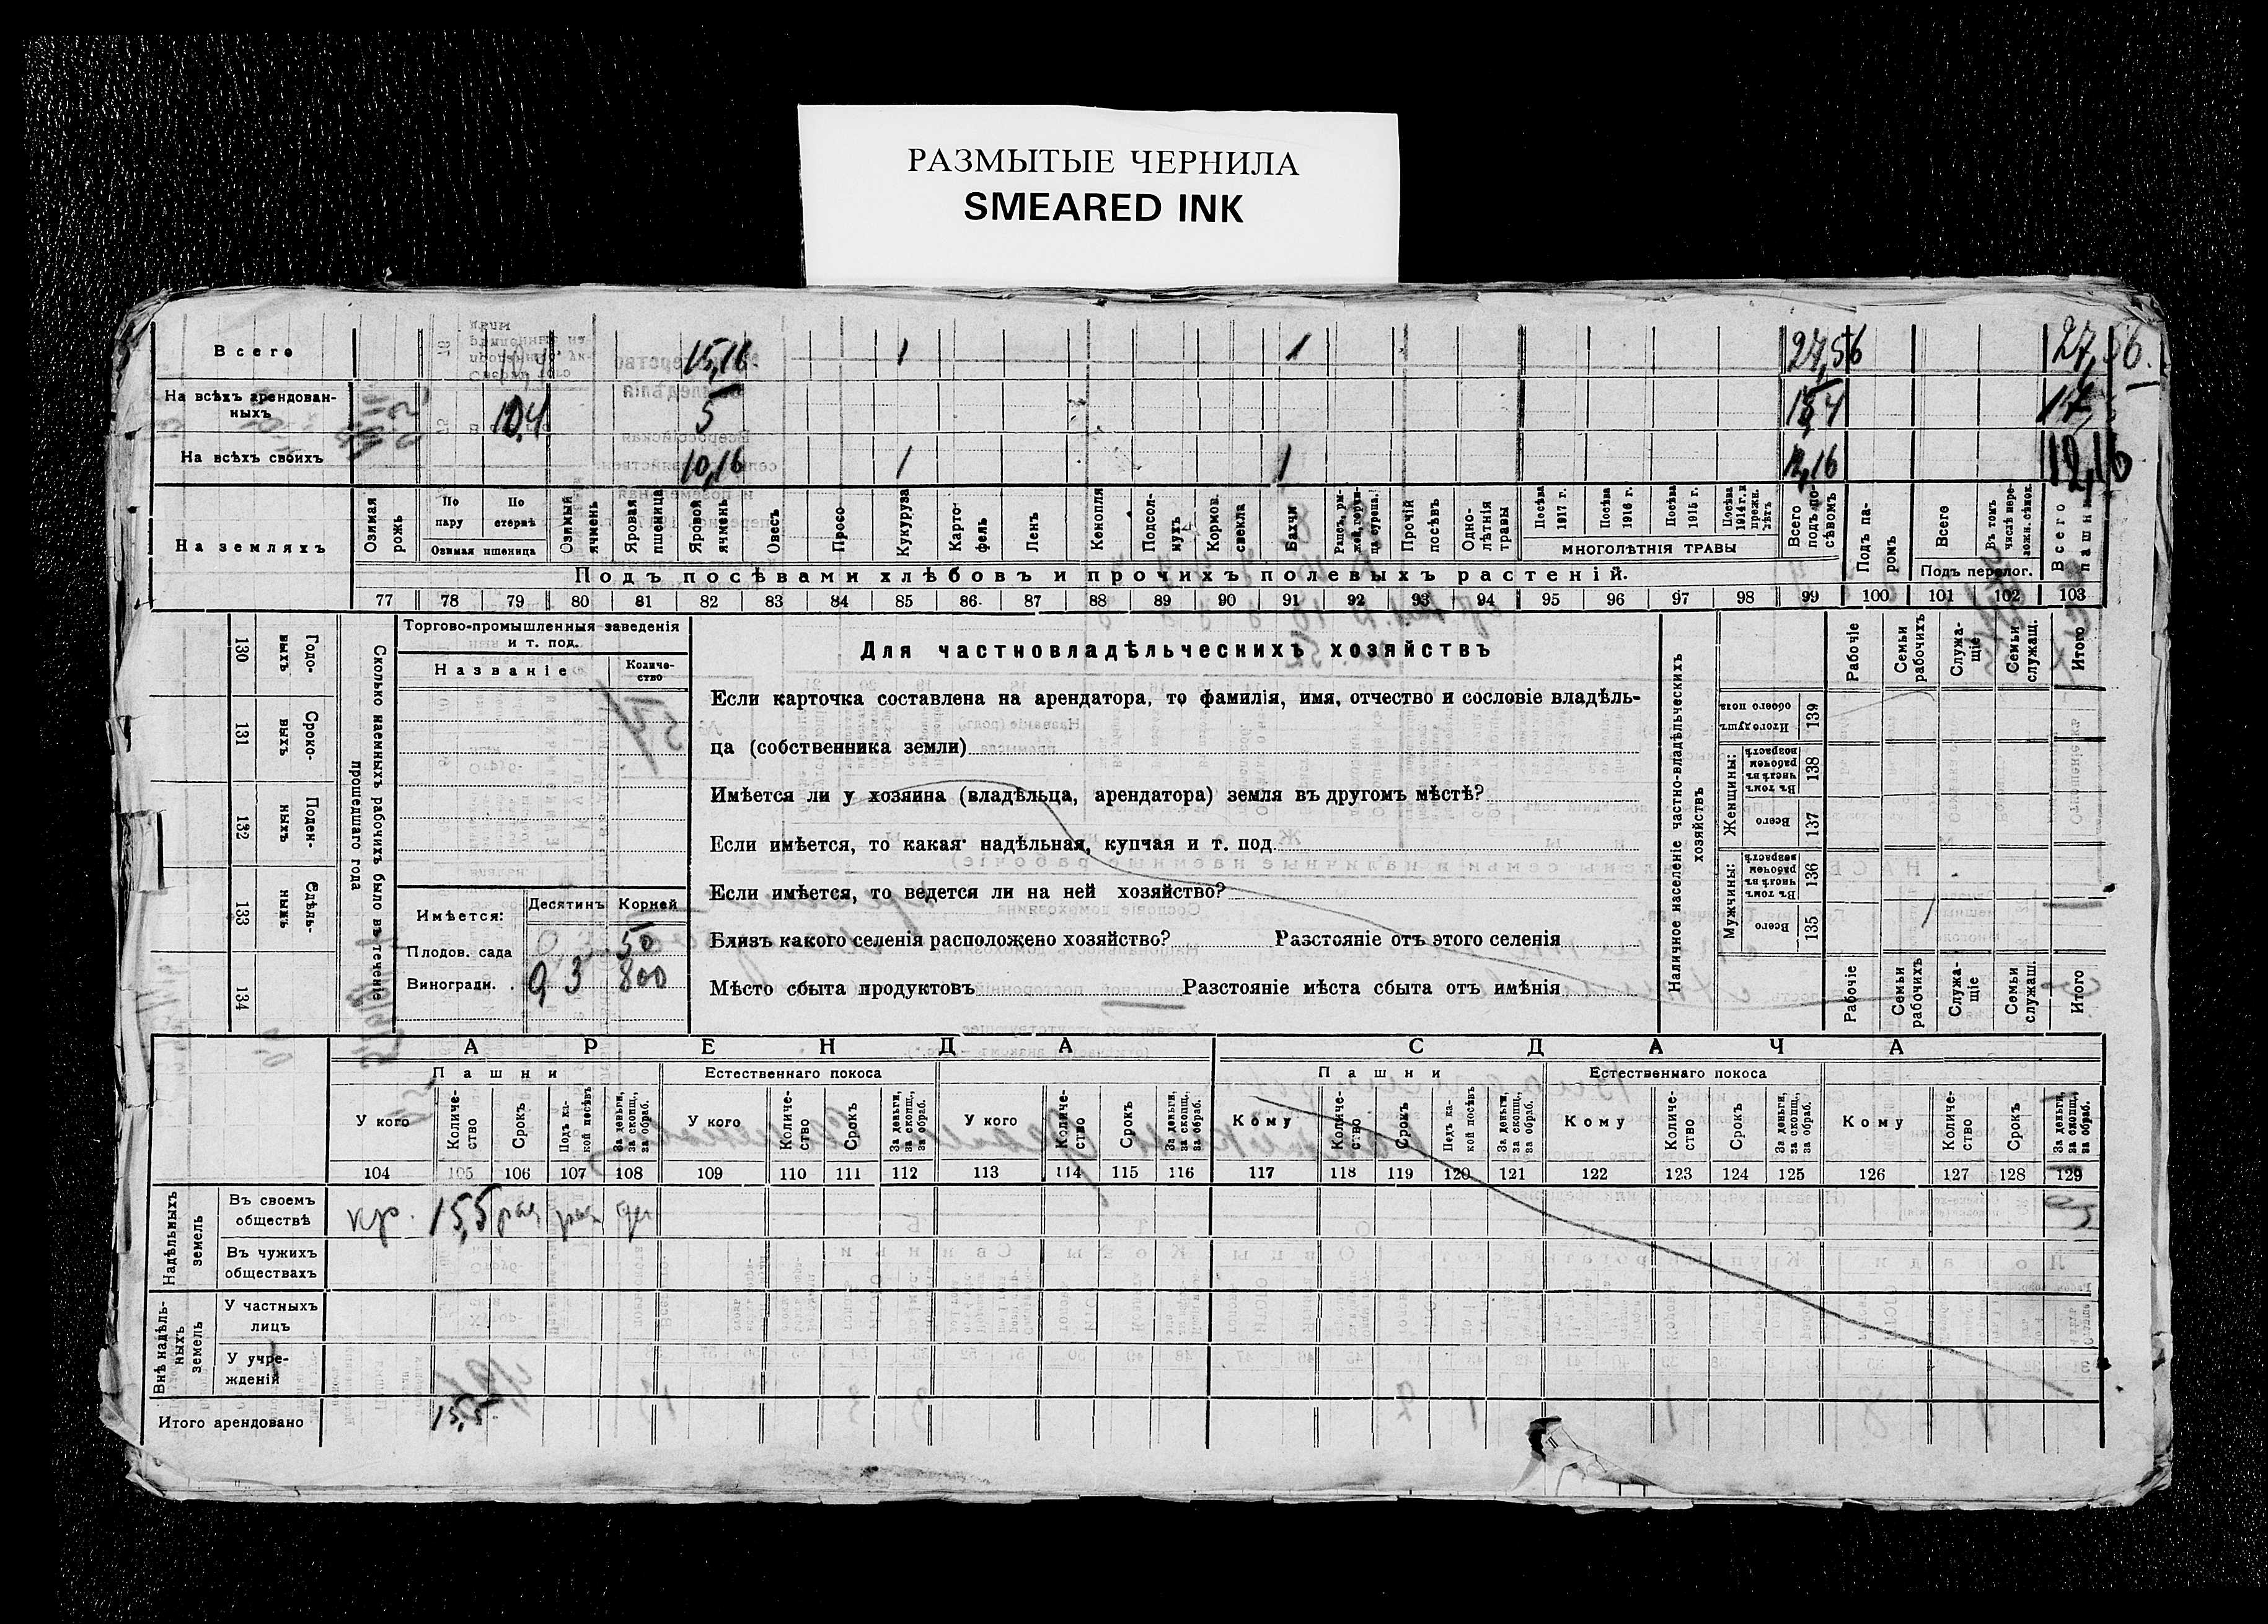 РАЗМЫТЫЕ ЧЕРНИЛА
SMEARED INK
Всего 15,16 1 1 27,56 27,56.
На всѣхъ арендован-
ныхъ 10,4 5 15,4
На всѣхъ своихъ 10,16 1 1 12,16 12,16
На земляхъ
Озимая рожь
По пару
По стернѣ
Озимая пшеница
Озимый ячмень
Яровая пшеница
Яровой ячмень
Овесъ
Просо
Кукуруза
Карто-
фель
Ленъ
Конопля
Подсол-
нухъ
Кормов. свекла
Бахчи
Рапсъ, ры-
жей, горчи-
ца, сурепа.
Прочій посѣвъ
Одно-
лѣтнія травы
Посѣва 1917 г.
Посѣва 1916 г.
Посѣва 1915 г.
Посѣва 1914 г. и прежн. лѣтъ
МНОГОЛѢТНІЯ ТРАВЫ
Всего подъ по-
сѣвомъ
Подъ па-
ромъ
Всего
Въ томъ числѣ пере-
ложн. сѣнок.
Подъ перелог.
Всего пашни
Подъ посѣвами хлѣбовъ и прочихъ полевыхъ растеній.
77 78 79 80 81 82 83 84 85 86 87 88 89 90 91 92 93 94 95 96 97 98 99 100 101 102 103
130 Годо-
выхъ
131 Сроко-
выхъ
132 Поден-
ныхъ
133 Сдѣль-
ныхъ
134
Сколько наемныхъ рабочихъ было въ теченіе
прошедшаго года
Торгово-промышленныя заведенія
и т. под.
Названіе
Количе-
ство
Имѣется: Десятинъ Корней
Плодов. сада 50
Виноградн. . 0,3 800
Для частновладѣльческихъ хозяйствъ
Если карточка составлена на арендатора, то фамилія, имя, отчество и сословіе владѣль-
ца (собственника земли)
Имѣется ли у хозяина (владѣльца, арендатора) земля въ другомъ мѣстѣ?
Если имѣется, то какая: надѣльная, купчая и т. под.
Если имѣется, то ведется ли на ней хозяйство?
Близъ какого селенія расположено хозяйство? Разстояніе отъ этого селенія
Мѣсто сбыта продуктовъ Разстояніе мѣста сбыта отъ имѣнія
Наличное населеніе частно-владѣльческихъ
хозяйствъ
Рабочіе
Семьи рабочихъ
Служа-
щіе
Семьи служащ.
Итого
139 Итого душъ обоего пола
Женщины:
138 Въ томъ числѣ въ рабочемъ возрастѣ
137 Всего
Мужчины:
136 Въ томъ числѣ въ рабочемъ возрастѣ
135 Всего
Рабочіе
Семьи рабочихъ
Служа-
щіе
Семьи служащ.
Итого
АРЕНДА СДАЧА
Пашни Естественнаго покоса Пашни Естественнаго покоса
У кого
Количе-
ство
Срокъ
Подъ ка-
кой посѣвъ
За деньги, за скопщ., за обраб.
У кого
Количе-
ство
Срокъ
За деньги, за скопщ., за обраб.
У кого
Количе-
ство
Срокъ
За деньги, за скопщ., за обраб.
Кому
Количе-
ство
Срокъ
Подъ ка-
кой посѣвъ
За деньги, за скопщ., за обраб.
Кому
Количе-
ство
Срокъ
За деньги, за скопщ., за обраб.
Кому
Количе-
ство
Срокъ
За деньги, за скопщ., за обраб.
104 105 106 107 108 109 110 111 112 113 114 115 116 117 118 119 120 121 122 123 124 125 126 127 128 129
Надѣльныхъ земель
Въ своемъ
обществѣ кр. 15,5
Въ чужихъ
обществахъ
Внѣ надѣль-
ныхъ земель
У частныхъ
лицъ
У учре-
жденій
Итого арендовано 15,5